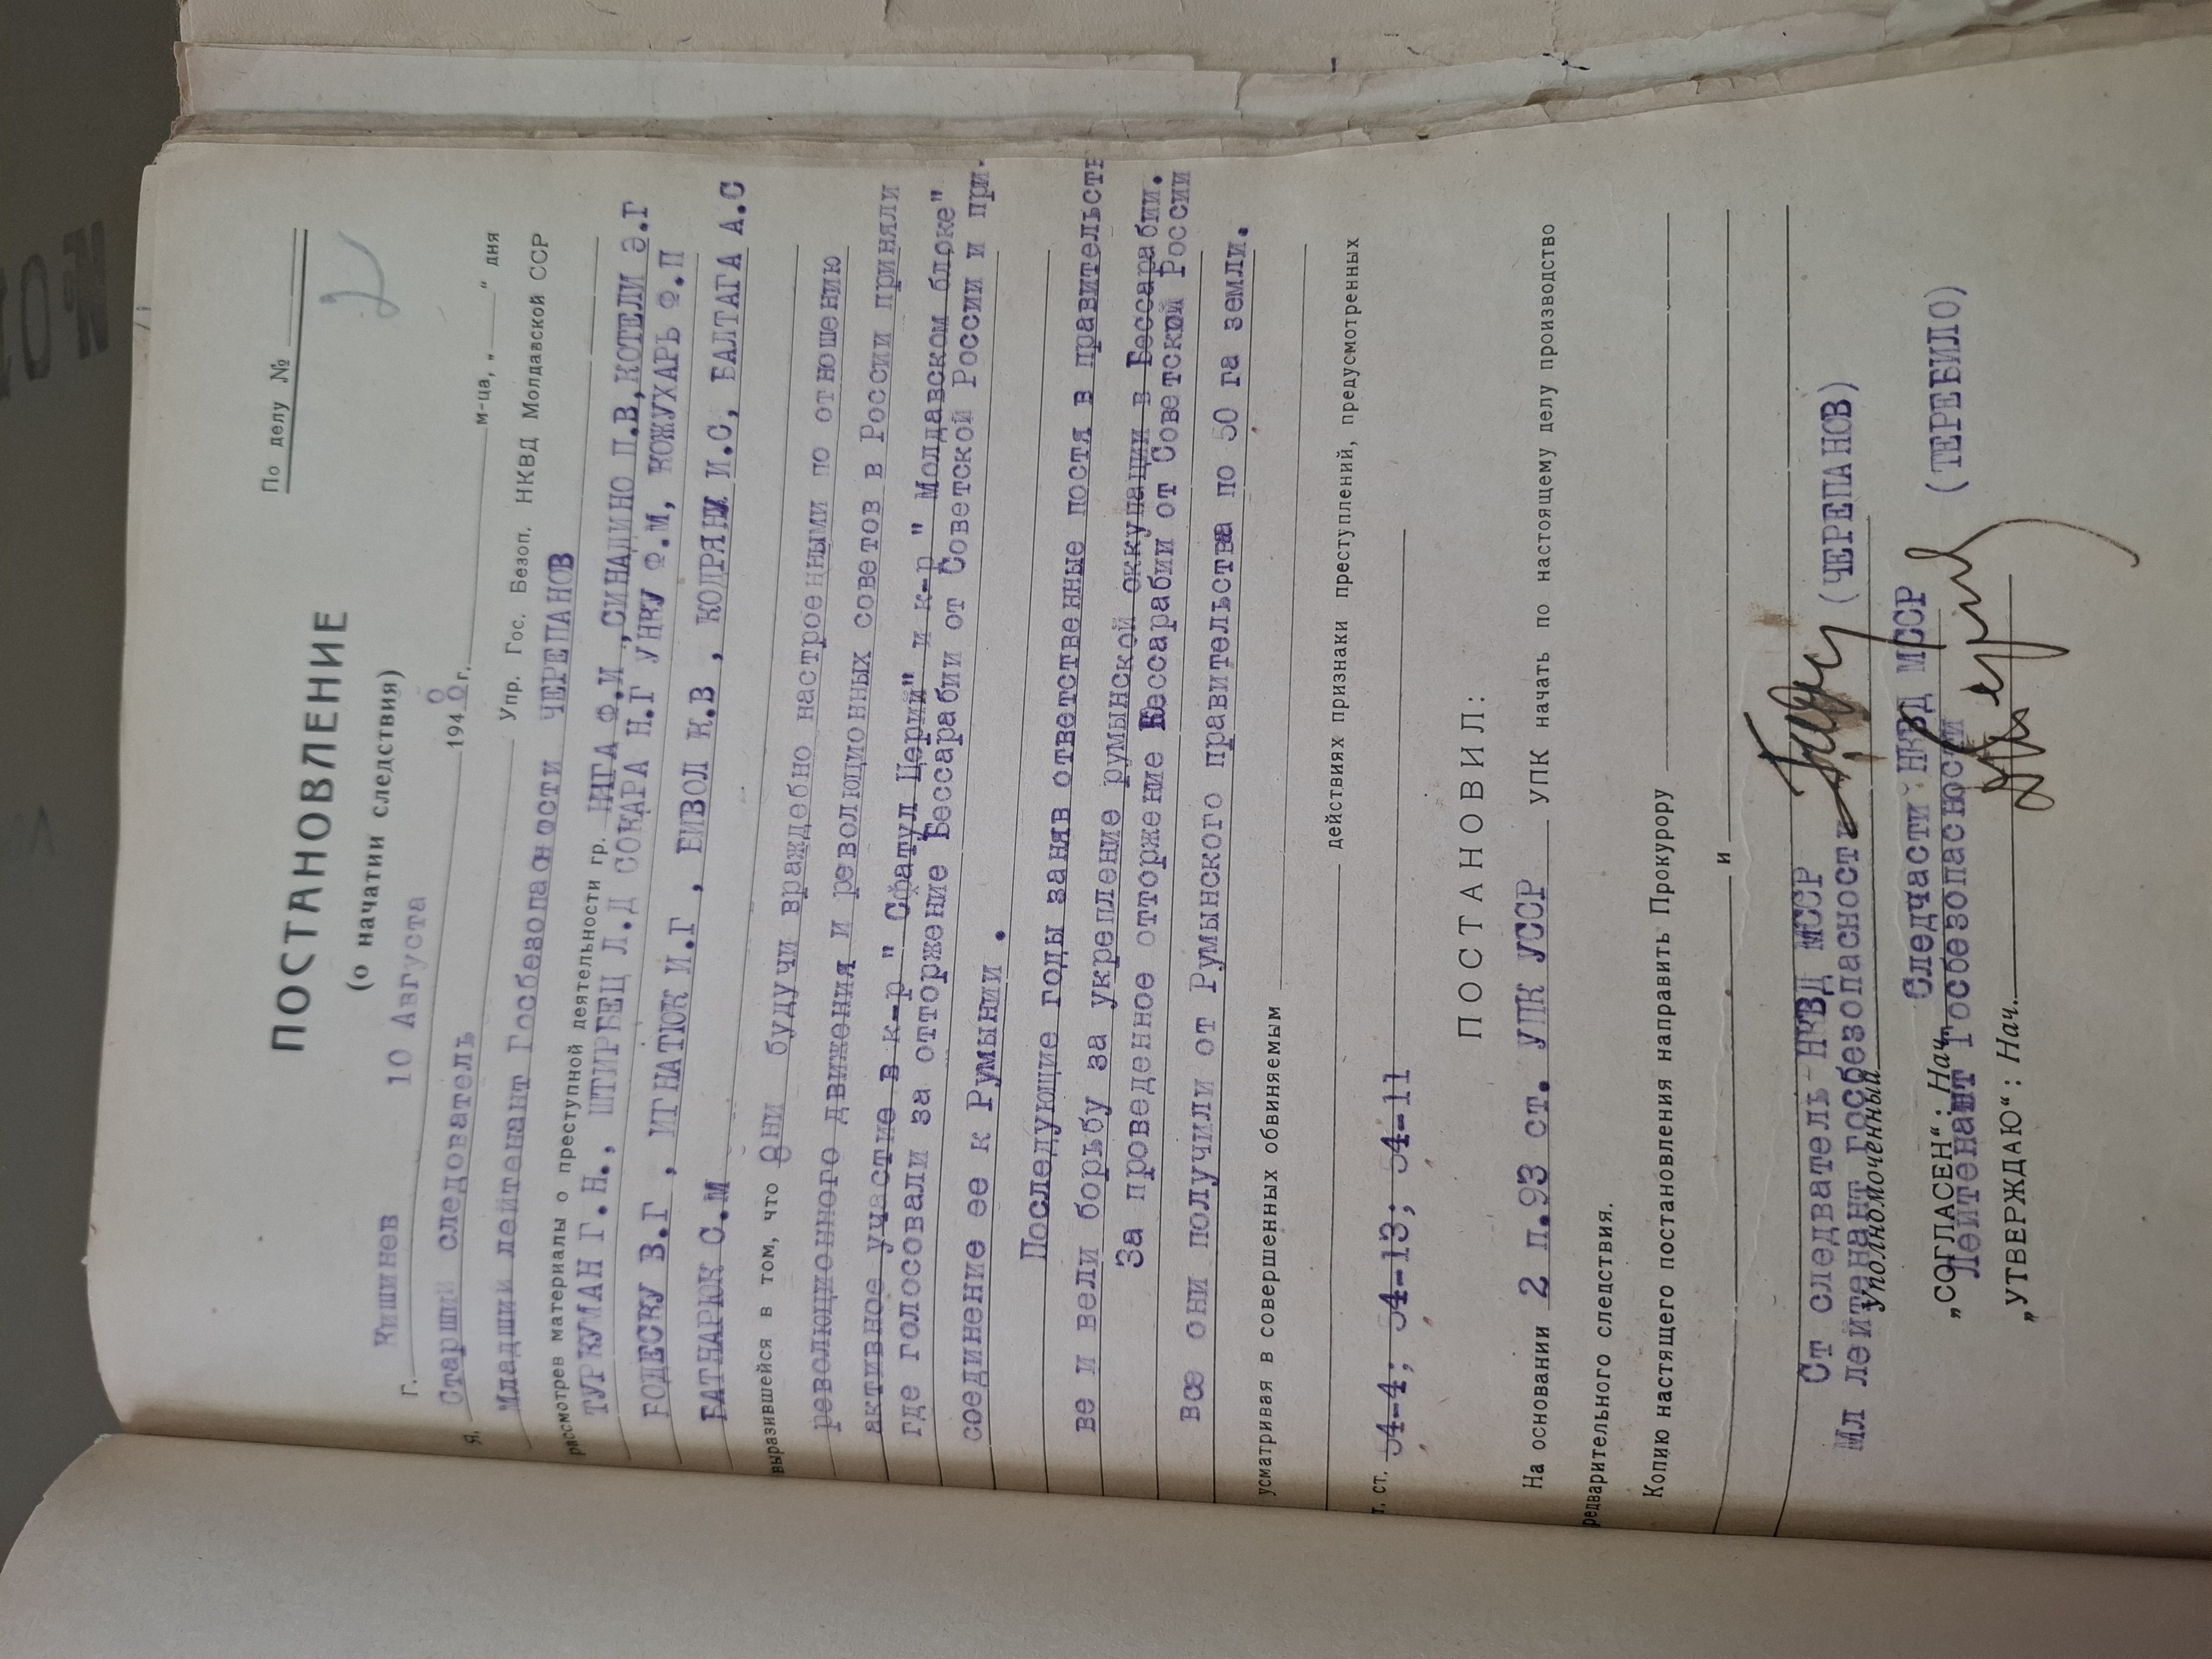 По делу №
2
ПОСТАНОВЛЕНИЕ
(о начатии следствия)
г. Кишинев 10 Августа 1940 г. м-ца, „ “ дня
Я, Старший следователь Упр. Гос. Безоп. НКВД Молдавской ССР
Младший лейтенант Госбезопасности ЧЕРЕПАНОВ
рассмотрев материалы о преступной деятельности гр. НАГА Ф.И ,СИНАДИНО П.В,КОТЕЛИ Э.Г
ТУРКУМАН Г.Н., ШТИРБЕЦ Л.Д СОКАРА Н.Г УНКУ Ф.М, КОЖУХАРЬ Ф.П
БОДЕСКУ В.Г , ИГНАТЮК И.Г , БИВОЛ К.В , КОДРЯНИ И.С, БАЛТАГА А.С
БАТНАРЮК С.М
выразившейся в том, что они будучи враждебно настроенными по отношению
революционного движения и революционных советов в России приняли
активное участие в к-р " Сфатул Церий" и к-р " Молдавском блоке"
где голосовали за отторжение Бессарабии от Советской России и при.
соединение ее к Румынии .
Последующие годы заняв ответственные постя в правительств
ве и вели борьбу за укрепление румынской оккупации в Бессарабии.
За проведенное отторжение Бессарабии от Советской России
все они получили от Румынского правительства по 50 га земли.
усматривая в совершенных обвиняемым
действиях признаки преступлений, предусмотренных
т. ст. 54-4; 54-13; 54-11
ПОСТАНОВИЛ:
На основании 2 п.93 ст. УПК УССР УПК начать по настоящему делу производство
редварительного следствия.
Копию настящего постановления направить Прокурору
и
Ст следватель НКВД МССР
Мл лейтенант госбезопасности (ЧЕРЕПАНОВ)
уполномоченный
Следчасти НКВД МССР
„СОГЛАСЕН“: Нач.
Лейтенант Госбезопасности (ТЕРЕБИЛО)
„УТВЕРЖДАЮ“: Нач.